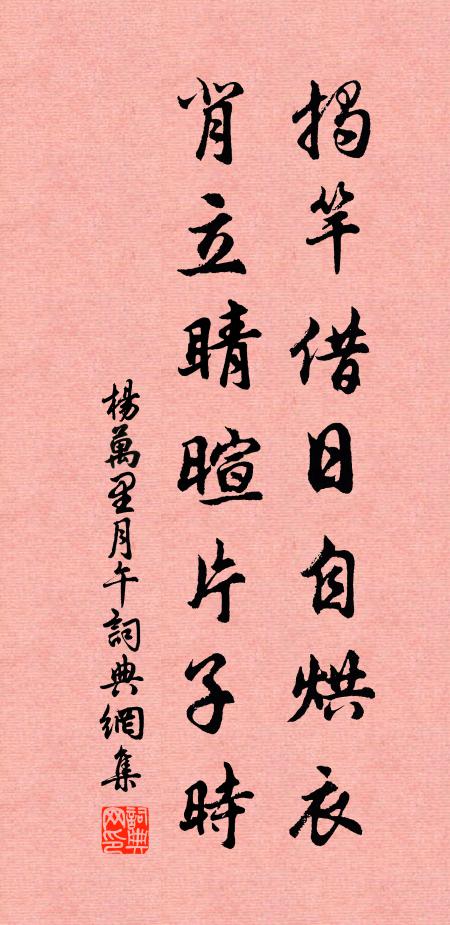 揭竿借日自烘衣
肖立晴暄片子時
楊萬里月午詞典網集
詞典网印